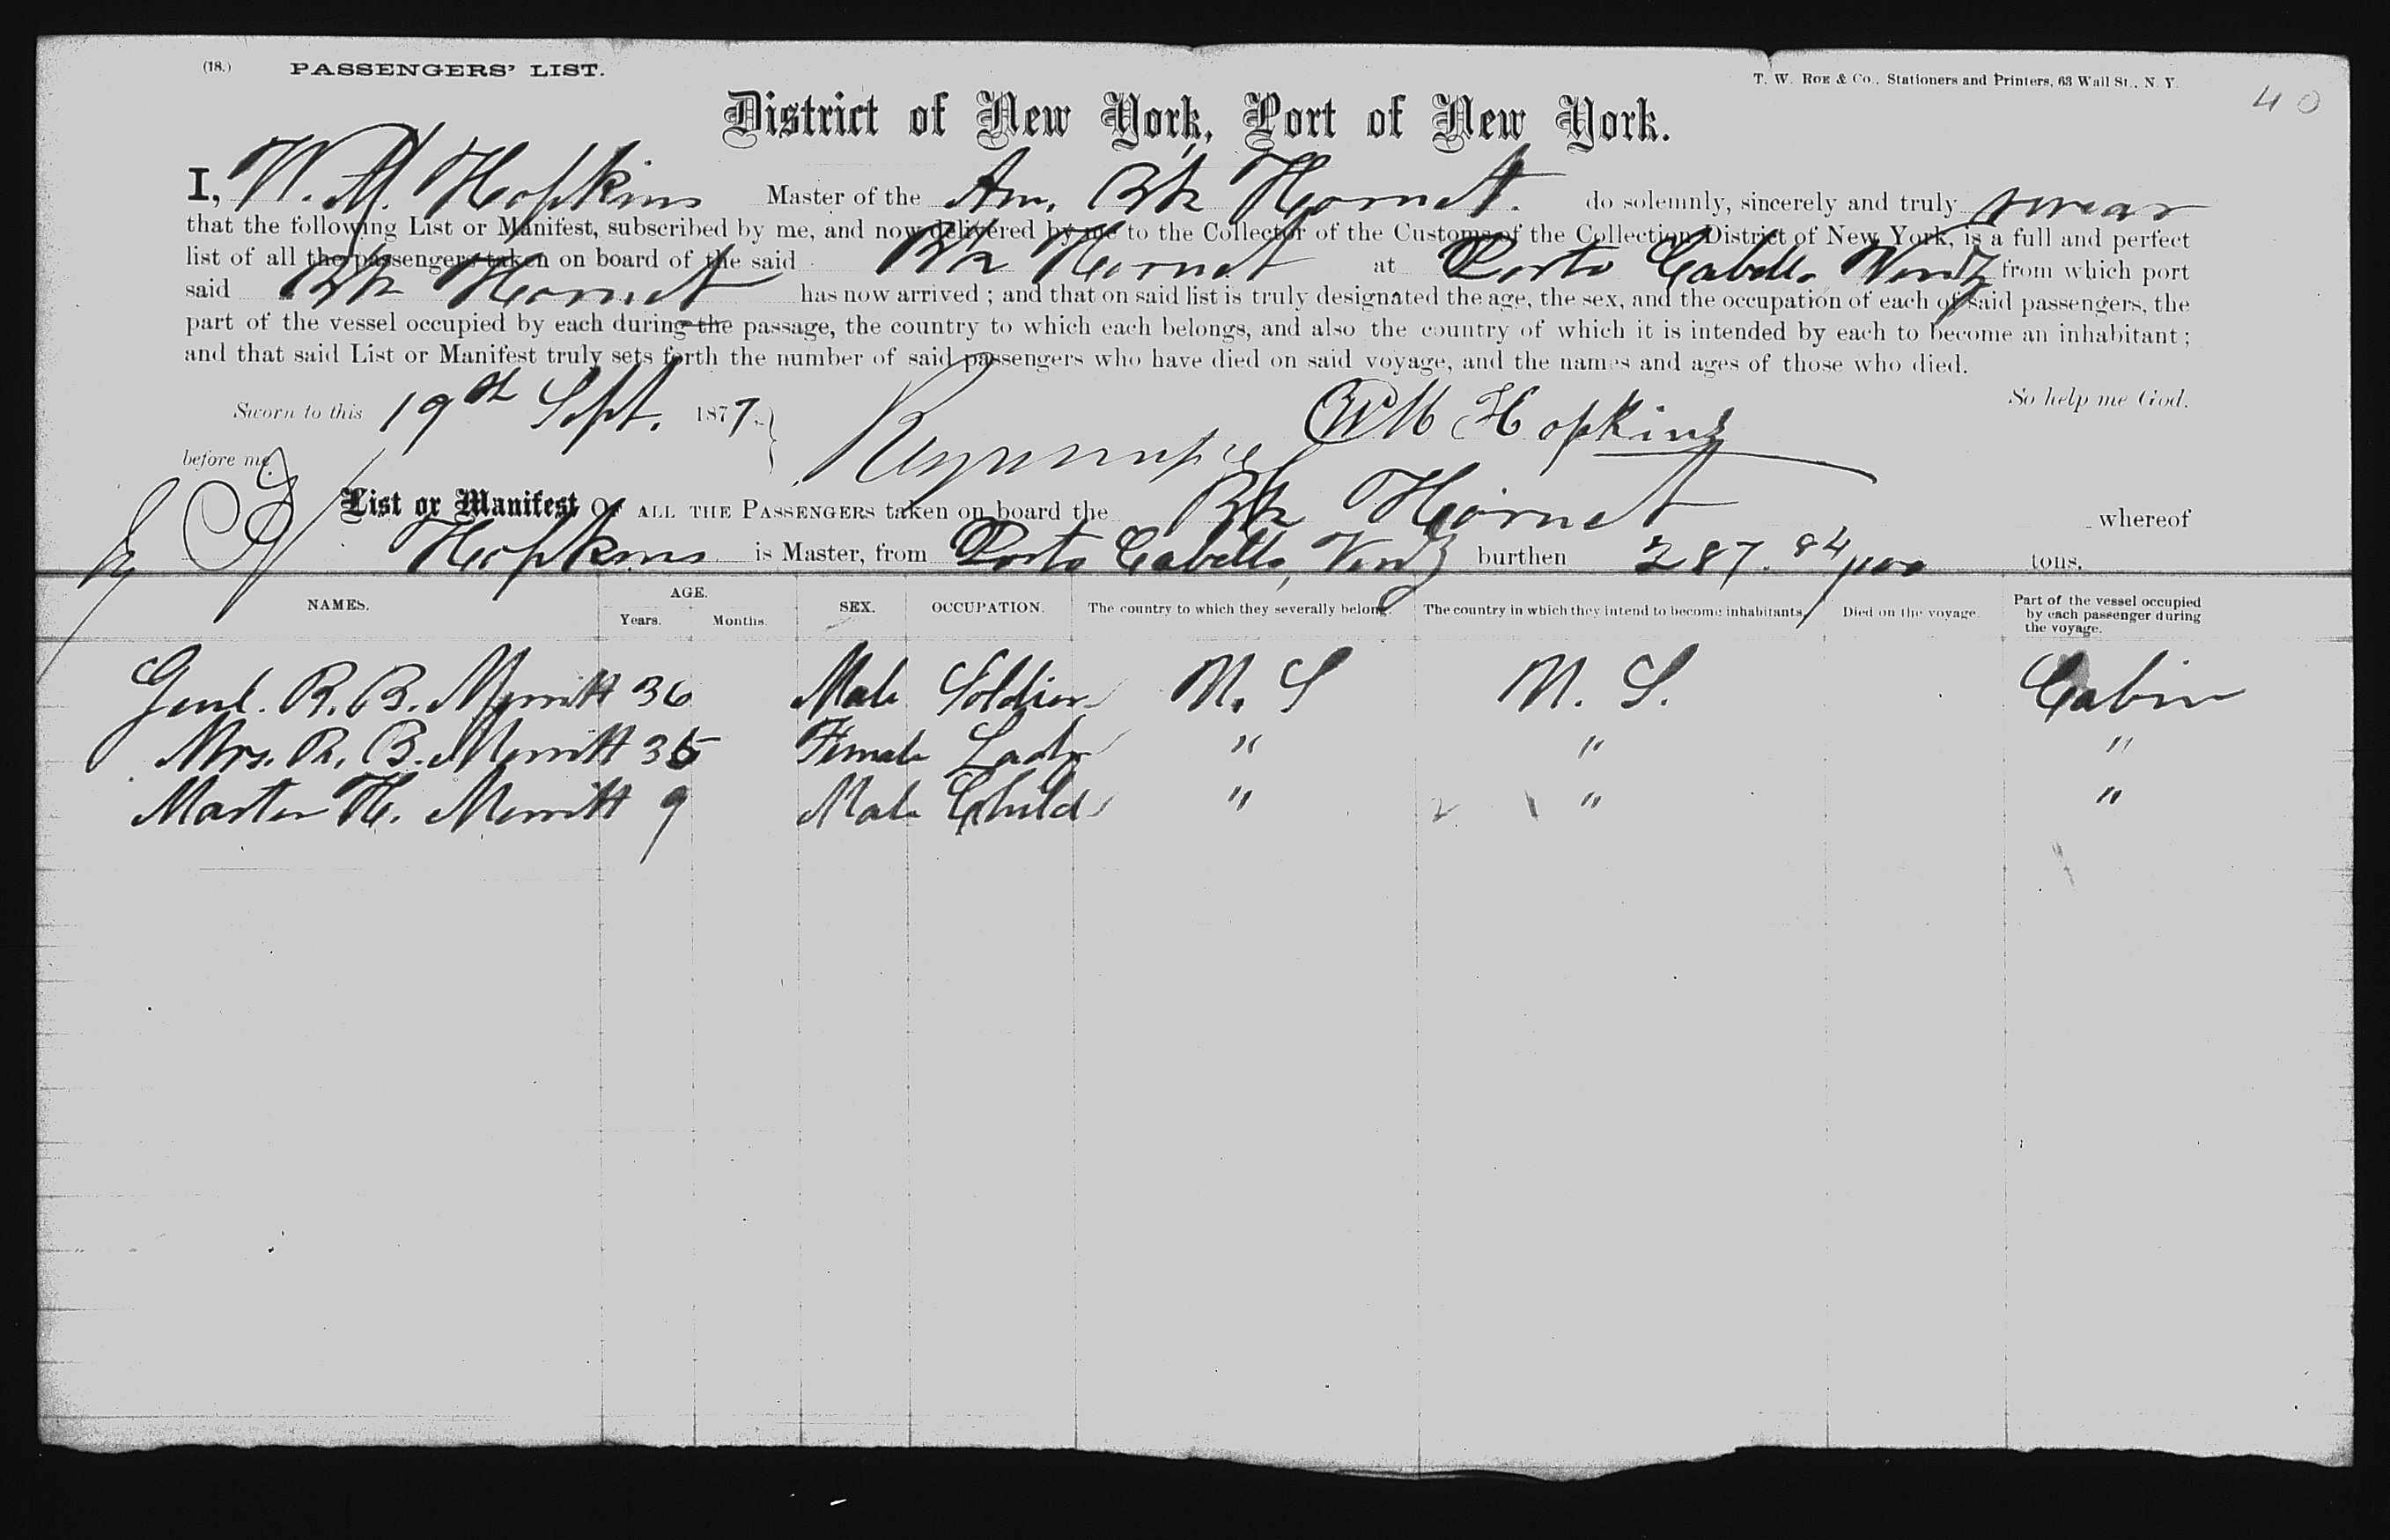 (18.) PASSENGERS' LIST.
T. W. ROE & Co., Stationers and Printers, 63 Wall St., N. Y.
40
District of New York, Port of New York.
I, W. M. Hopkins Master of the Am. Bk Hornet. do solemnly, sincerely and truly swear
that the following List or Manifest, subscribed by me, and now delivered by me to the Collector of the Customs of the Collection District of New York, is a full and perfect
list of all the passengers taken on board of the said Bk Hornet at Porto Cabello Venz from which port
said Bk Hornet has now arrived ; and that on said list is truly designated the age, the sex, and the occupation of each of said passengers, the
part of the vessel occupied by each during the passage, the country to which each belongs, and also the country of which it is intended by each to become an inhabitant ;
and that said List or Manifest truly sets forth the number of said passengers who have died on said voyage, and the names and ages of those who died.
So help me God.
Sworn to this 19th Sept. 1877. WM Hopkins
before me
List or Manifest OF ALL THE PASSENGERS taken on board the Bk Hornet whereof
Hopkins is Master, from Porto Cabello, Venz burthen 287. 84/100 tons.
NAMES. AGE. Years. Months. SEX. OCCUPATION. The country to which they severally belong. The country in which they intend to become inhabitants. Died on the voyage. Part of the vessel occupied by each passenger during the voyage.
Genl. R. B. Merritt 36 Male Soldier U. S U. S. Cabin
Mrs. R. B. Merritt 35 Female Lady " " "
Master H. Merritt 9 Male Child " " "